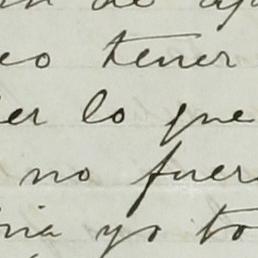 de
eo tener
er lo que
no fuer
ia yo to